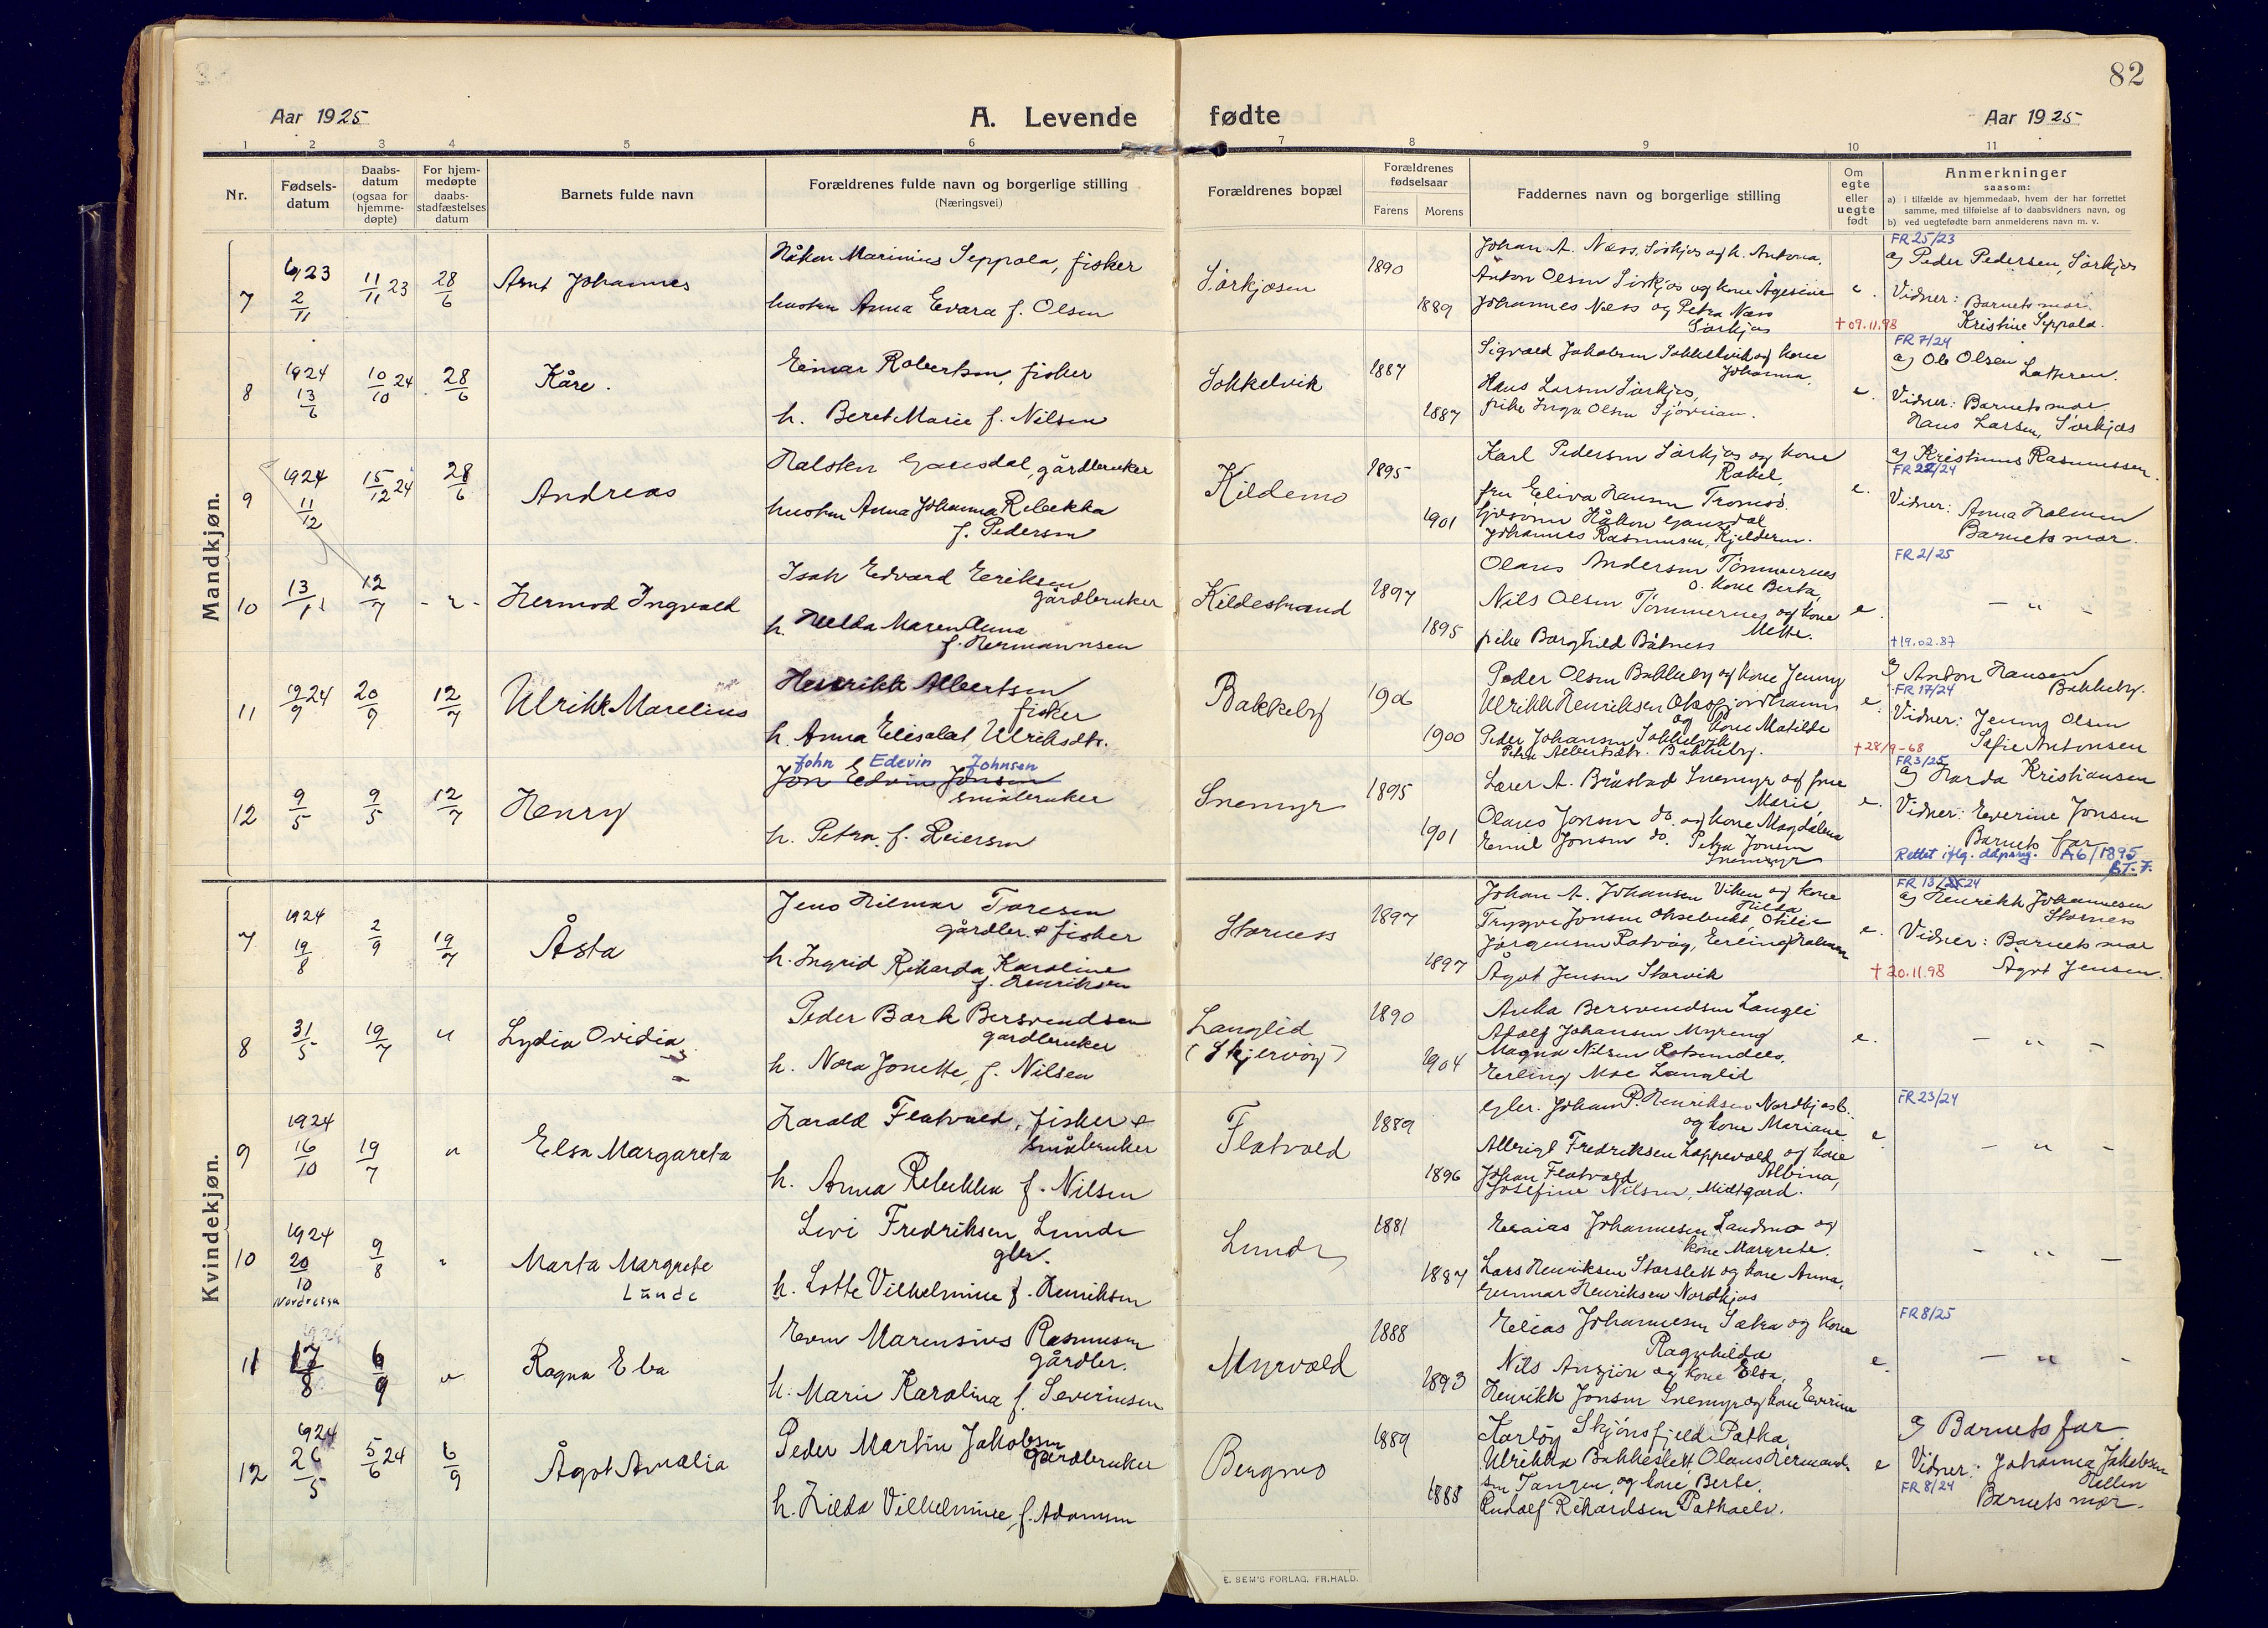 82
Aar 1925
A. Levende fødte
Aar 1925
1 2 3 4 5 6 7 8 9 10 11
Nr.
Fødsels-
datum
Daabs-
datum
(ogsaa for
hjemme-
døpte)
For hjem-
medøpte
daabs-
stadfæstelses
datum
Barnets fulde navn
Forældrenes fulde navn og borgerlige stilling
(Næringsvei)
Forældrenes bopæl
Forældrenes
fødselsaar
Farens Morens
Faddernes navn og borgerlige stilling
Om
egte
eller
uegte
født
Anmerkninger
saasom:
a) i tilfælde av hjemmedaab, hvem der har forrettet
samme, med tilføielse av to daabsvidners navn, og
b) ved uegtefødte barn anmelderens navn m. v.
Mandkjøn.
7
1923
2/11
11/11 23
28/6
Arnt Johannes
Håkon Marinius Seppola, fisker
hustru Anna Evara f. Olsen
Sørkjosen
1890
1889
Johan A. Næss, Sørkjos og h. Antona,
Anton Olsen Sørkjos og kone Ågesine
Johannes Næss og Petra Næss
Sørkjos
e.
† 09.11.98
FR 25/23
a) Peder Pedersen, Sørkjos
Vidner: Barnets mor
Kristine Seppola.
8
1924
13/6
10/10 24
28/6
Kåre.
Einar Robertsen, fisker
h. Beret Marie f. Nilsen
Sokkelvik
1887
1887
Sigvald Jakobsen Sokkelvik og kone
Johanna,
Hans Larsen Sørkjos,
pike Inga Olsen
e.
FR 7/24
a) Ole Olsen
Vidner: Barnets mor
Hans Larsen, Sørkjos
9
1924
11/12
15/12 24
28/6
Andreas
Halsten Gausdal, gårdbruker
hustru Anna Johanna Rebekka
f. Pedersen
Kildemo
1895
1901
Karl Pedersen Sørkjos og kone
Rakel,
fru Eliva Hansen Tromsø.
Håkon Gausdal
Johannes Rasmussen,
e.
a) Kristinus Rasmussen.
FR 22/24
Vidner: Anna Holmen
Barnets mor.
10
13/1
12/7
- " -
Hermod Ingvald
Isak Edvard Eriksen
gårdbruker
h. Helda Maren Anna
f. Hermannsen
Kildestrand
1897
1895
Olaus Andersen Tømmernes
o. kone Berta,
Nils Olsen Tømmernes og kone
Mette.
pike Borghild Båtness
e
FR 2/25
- " -
† 19.02.87
11
1924
9
20/9
12/7
Ulrikk Marelius
Henrikk Albertsen
fisker
h. Anna Elisabet Ulriksdtr.
Bakkeby
1900
Peder Olsen Bakkeby og kone Jenny
Ulrikk Henriksen
og kone Matilde
Peder Johansen Sokkelvik
Petra Albertsdtr. Bakkeby.
e.
† 28/9-68
a) Anton Hansen
Bakkeby.
FR 17/24
Vidner: Jenny Olsen
Sofie Antonsen
12
9/5
9/5
12/7
Henry
John Edevin Johnsen
Jon Edvin Jonsen
småbruker
h. Petra f. Reiersen
Snemyr
1895
1901
Lærer A. Bråstad Snemyr og frue
Marie,
Olaus Jonsen do. og kone Magdalena
Emil Jonsen do. Petra Jonsen
Snemyr
e.
FR 3/25
a) Harda Kristiansen
Vidner: Everine Jonsen
Barnets far
Rettet iflg. A6/1895
Kvindekjøn.
7
1924
19/8
2/9
19/7
Åsta
Jens Hilmar Toresen
gårdbr. & fisker
h. Ingrid Rikarda Karoline
f. Henriksen
Storness
1897
1897
Johan A. Johansen Viken og kone
Hilda
Trygve Jonsen Oksebukt, Otilie
Jørgensen Rotvåg, Erling Holmen
Ågot Jensen Storvik
e.
† 20.11.98
FR 13/24
a) Henrikk Johannesen
Storness
Vidner: Barnets mor
Ågot Jensen.
8
31/5
19/7
"
Lydia Ovidia
Peder Bark Bersvendsen
gardbruker
h. Nora Jonette, f. Nilsen
Langlid
(Skjervøy)
1890
1904
Anka Bersvendsen Langli
Adolf Johansen Myreng
Magna Nilsen
Erling Moe Langlid
e.
- " -
9
1924
16/10
19/7
"
Elsa Margareta
Harald Flatvold, fisker &
småbruker
h. Anna Rebekka f. Nilsen
Flatvold
1889
1896
Gbr. Johan P. Henriksen Nordkjosb.
og kone Mariane
Albrigt Fredriksen Loppevold og kone
Albina,
Johan Flatvold
Josefine Nilsen, Midtgard.
e
FR 23/24
- " -
10
1924
20/10
Nordreisa
9/8
"
Marta Margrete
Lunde
Levi Fredriksen Lunde
gbr.
h. Lotte Vilhelmine f. Henriksen
Lunde
1881
1887
Esaias Johannesen Sandmo og
kone Margrete.
Lars Henriksen Storslett og kone Anna,
Gunnar Henriksen Nordkjos
- " -
11
17/8
6/9
"
Ragna Eba
Even Marensius Rasmussen
gårdbr.
h. Marie Karolina f. Severinsen
Myrvold
1888
1893
Elias Johannesen Sætra og kone
Ragnhilda
Nils og kone Elsa,
Henrikk Jonsen Snemyr og kone Everine
e.
FR 8/25
- " -
12
1924
26/5
5/6 24
6/9
Ågot Amalia
Peder Martin Jakobsen
gardbruker
h. Hilda Vilhelmine, f. Adamsen
Bergmo
1889
1888
Skjønsfjell
Ulrikka Bakkeslett, Olaus Hermand-
sen Tangen, og kone Berle.
Rudolf Rikardsen
e
a) Barnets far
Vidner: Johanna Jakobsen
FR 8/24
Barnets mor.
E. SEM'S FORLAG, FR.HALD.